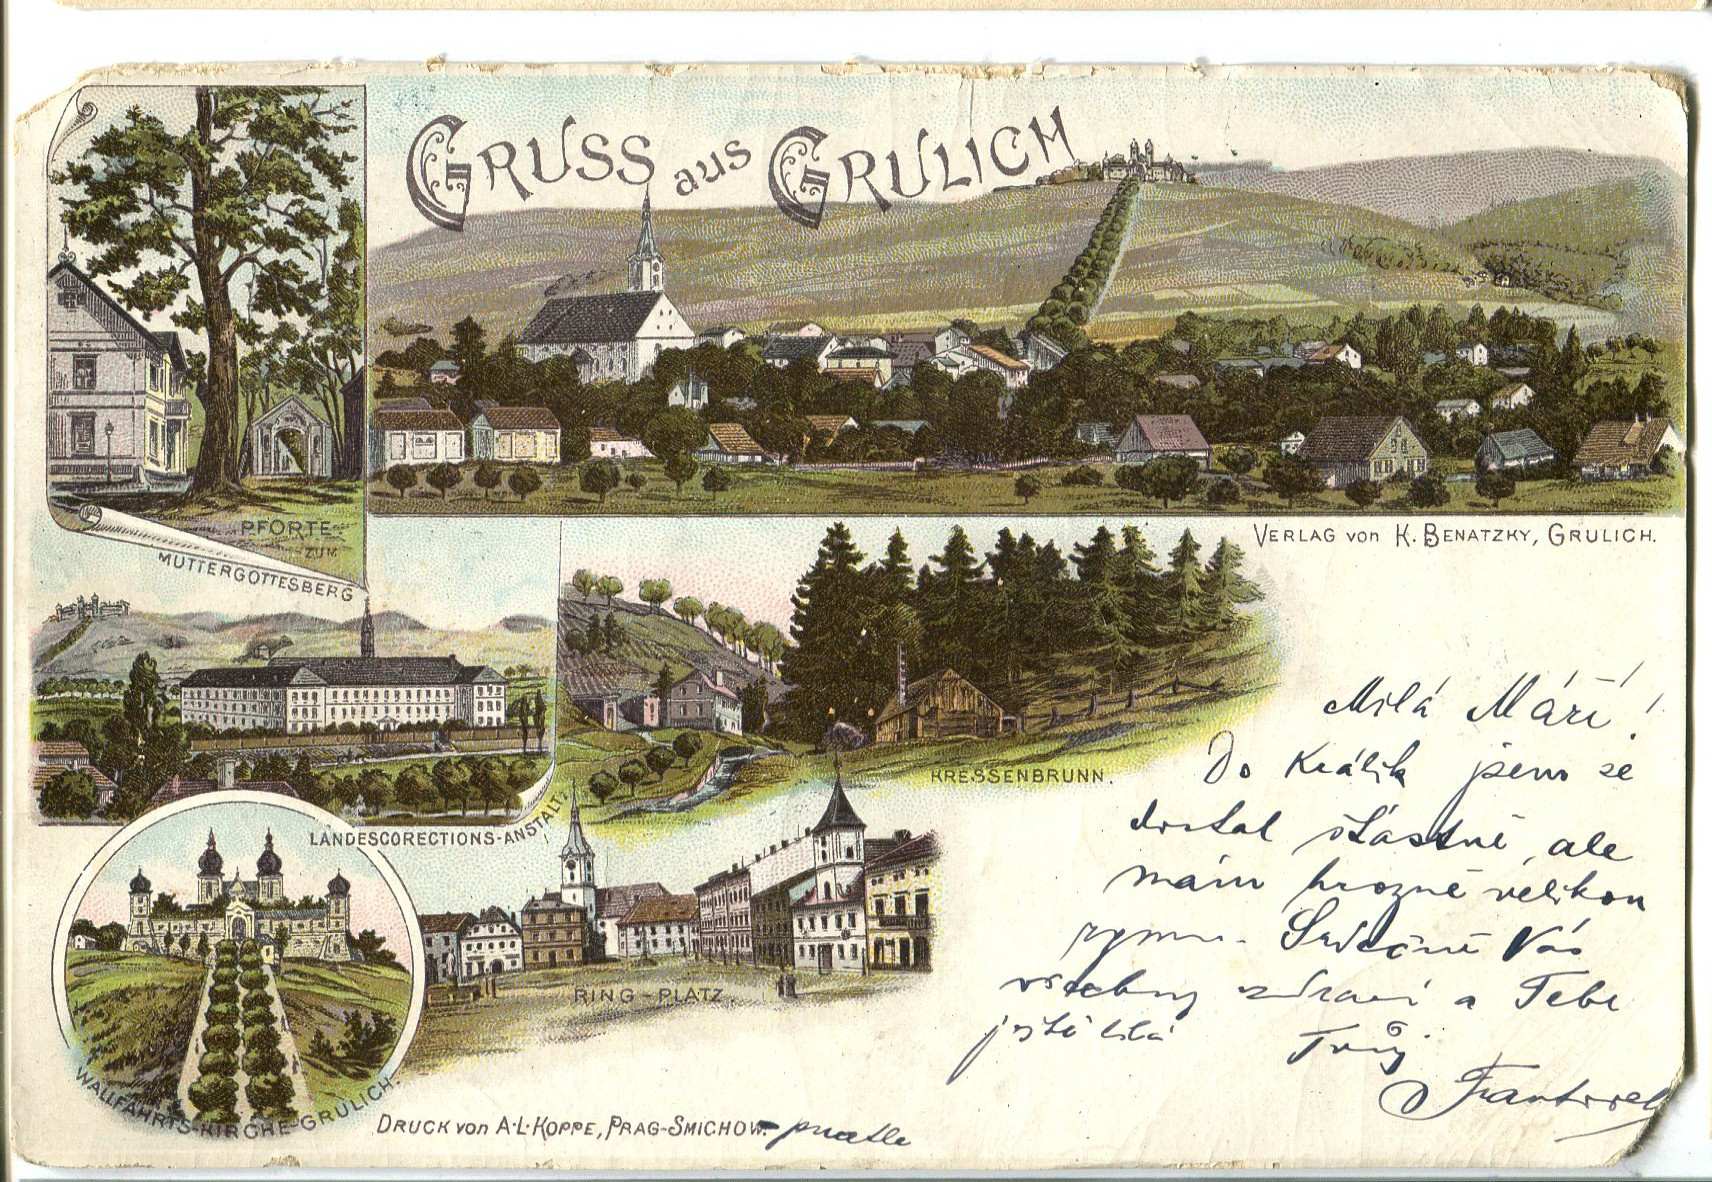 GRUSS aus GRULICH
PFORTE
ZUM
MUTTERGOTTESBERG
VERLAG von K. BENATZKY, GRULICH.
KRESSENBRUNN.
LANDESCORECTIONS-ANSTALT.
RING-PLATZ.
WALLFAHRTS-KIRCHE-GRULICH.
DRUCK von A.L. KOPPE, PRAG-SMICHOW.
Milá Máří!
Do Králík jsem se
dostal šťastně, ale
mám hrozně velikou
rýmu. Srdečně Vás
všechny zdraví a Tebe
ještě líbá
Tvůj